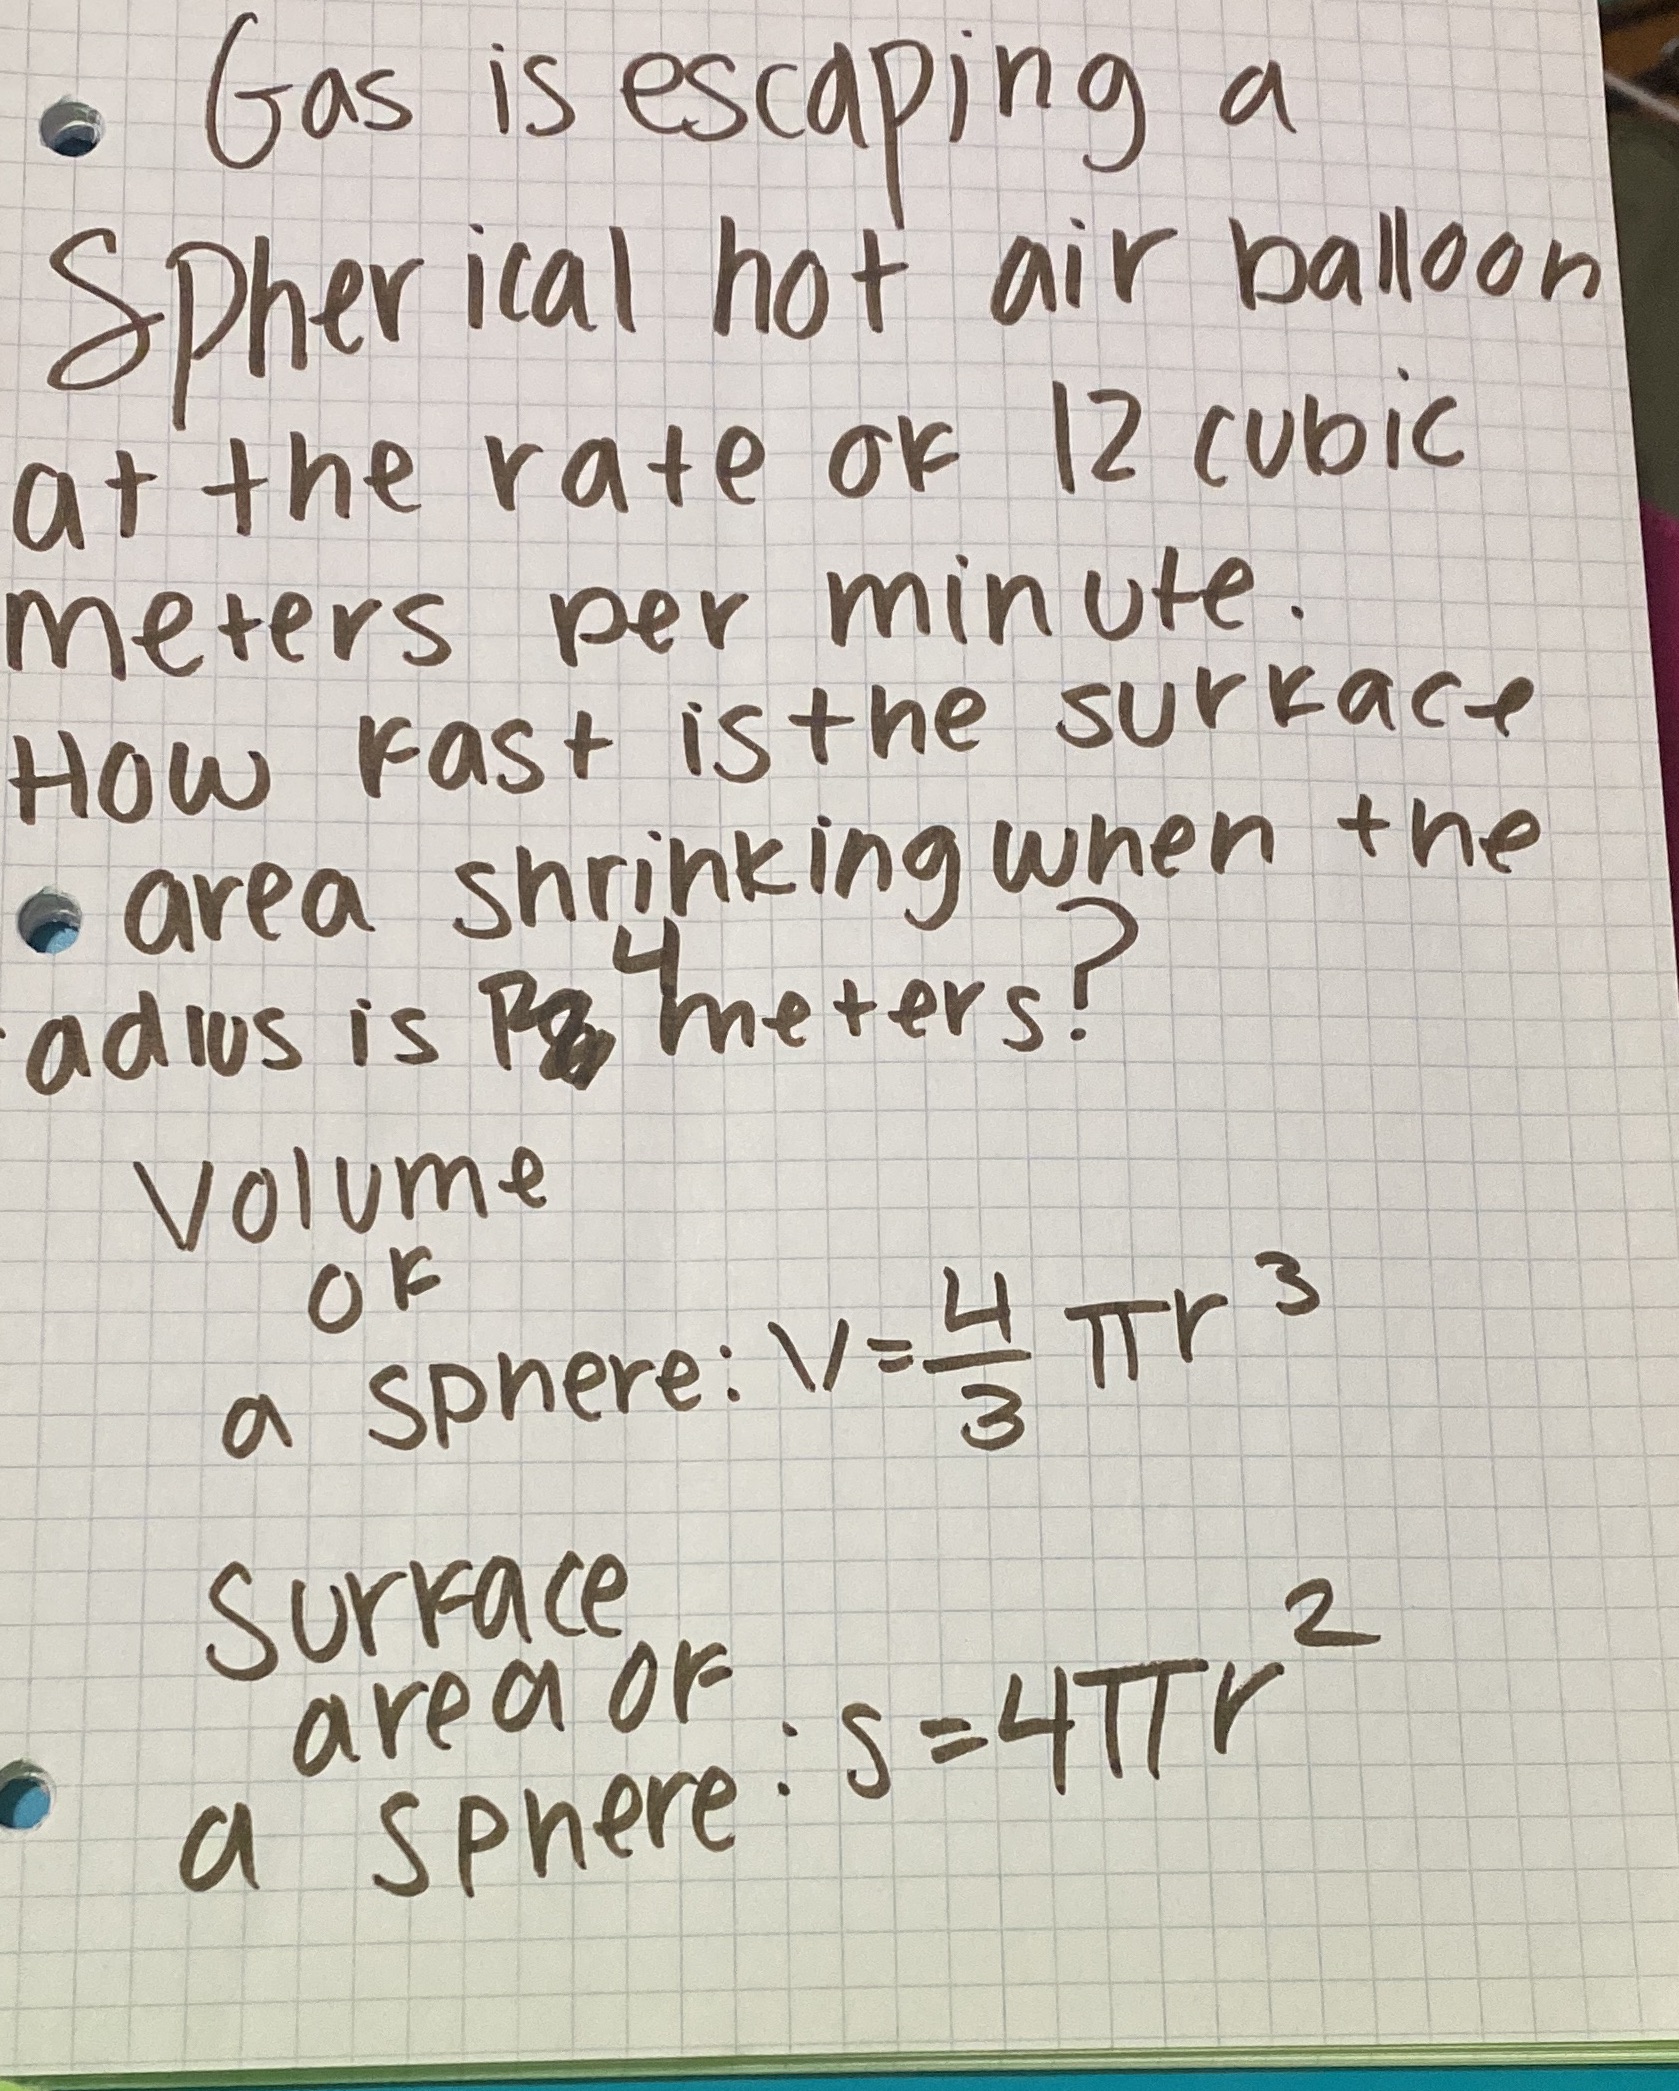 Gas is escaping a
Spherical hot air balloon
at the rate of 12 cubic
meters per minute.
How fast is the surface
area shrinking when the
adius is 4 meters?
Volume
of
a sphere: V=4/3 πr³
Surface
area of
a sphere: S=4πr²